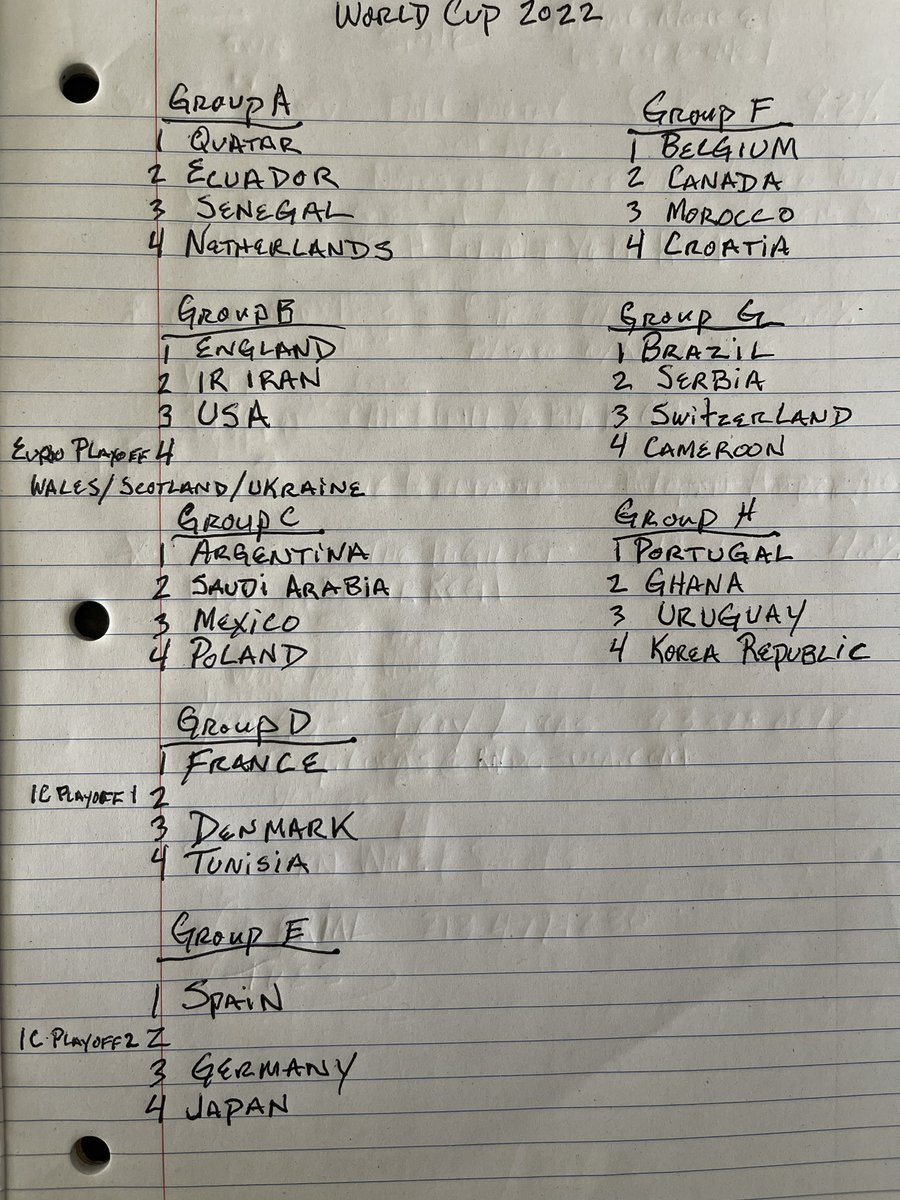 WORLD CUP 2022
GROUP A
1 QUATAR
2 ECUADOR
3 SENEGAL
4 NETHERLANDS
GROUP B
1 ENGLAND
2 IR IRAN
3 USA
EURO PLAYOFF 4
WALES/SCOTLAND/UKRAINE
GROUP C
1 ARGENTINA
2 SAUDI ARABIA
3 MEXICO
4 POLAND
GROUP D
1 FRANCE
IC PLAYOFF 1 2
3 DENMARK
4 TUNISIA
GROUP E
1 SPAIN
IC PLAYOFF 2 2
3 GERMANY
4 JAPAN
GROUP F
1 BELGIUM
2 CANADA
3 MOROCCO
4 CROATIA
GROUP G
1 BRAZIL
2 SERBIA
3 SWITZERLAND
4 CAMEROON
GROUP H
1 PORTUGAL
2 GHANA
3 URUGUAY
4 KOREA REPUBLIC